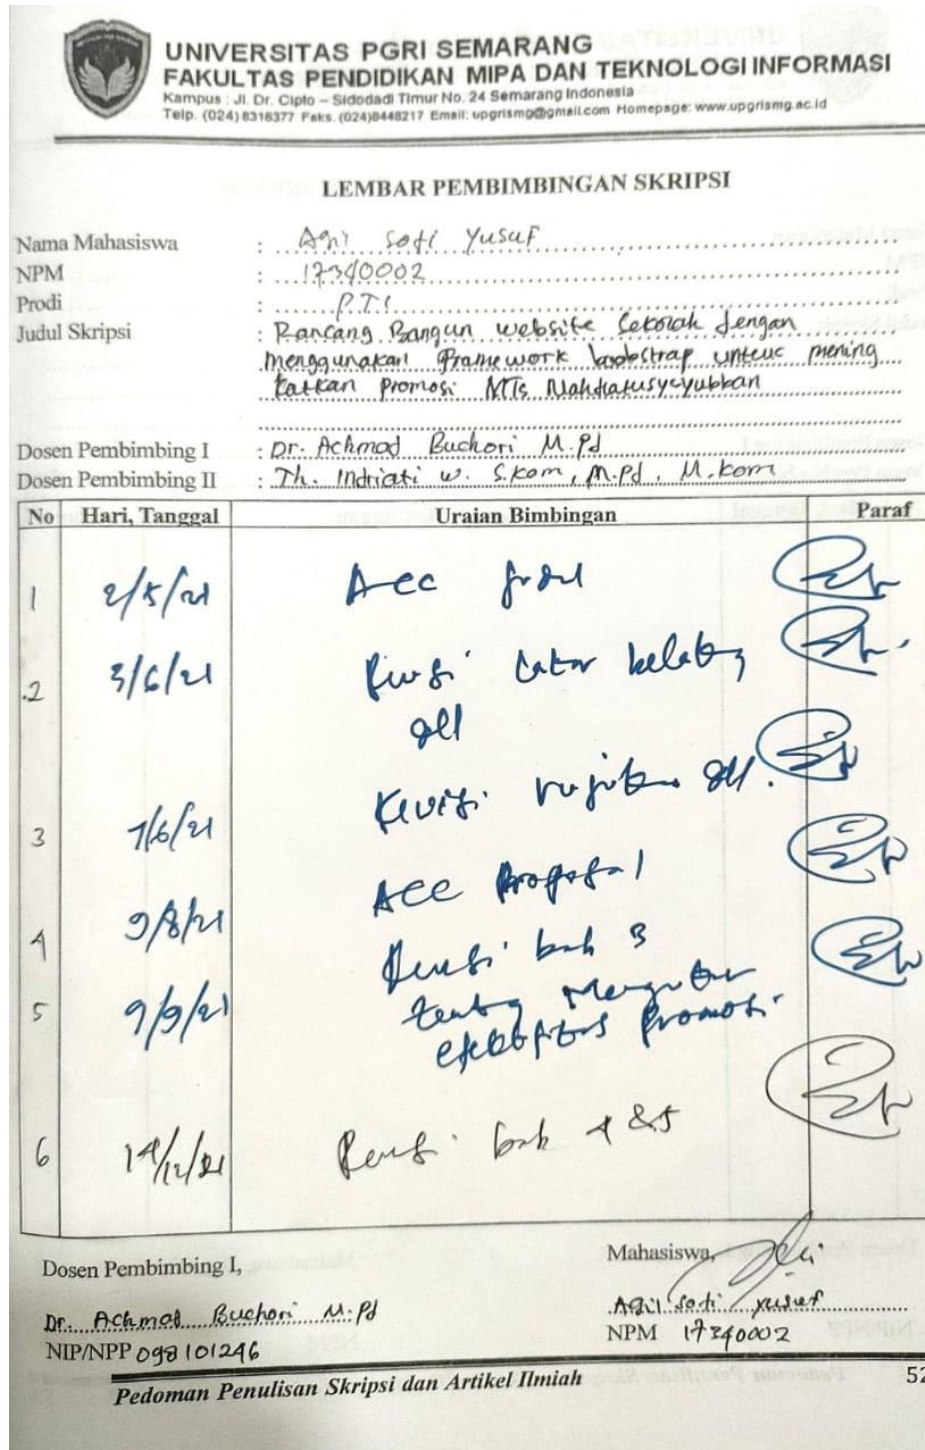 UNIVERSITAS PGRI SEMARANG
FAKULTAS PENDIDIKAN MIPA DAN TEKNOLOGI INFORMASI
Kampus : Jl. Dr. Cipto – Sidodadi Timur No. 24 Semarang Indonesia
Telp. (024) 8316377 Faks. (024)8448217 Email: upgrismg@gmail.com Homepage: www.upgrismg.ac.id
LEMBAR PEMBIMBINGAN SKRIPSI
Nama Mahasiswa : Soti Yusuf
NPM : 17340002
Prodi : PTI
Judul Skripsi : Rancang Bangun website Sekolah dengan
menggunakan framework bootstrap untuk mening
katkan promosi MTs
Dosen Pembimbing I : Dr. Achmad Buchori M.Pd
Dosen Pembimbing II : Th. Indriati W. S.Kom, M.Pd, M.Kom
No Hari, Tanggal Uraian Bimbingan Paraf
1 2/5/21 Acc judul
2 3/6/21 Revisi latar belakang
dll
3 7/6/21 Revisi rujukan dll.
4 9/8/21 ACC Proposal
5 9/9/21 Revisi bab 3
tentang Mengukur
efektifitas promosi
6 14/12/21 Revisi bab 4 & 5
Dosen Pembimbing I, Mahasiswa,
Dr. Achmad Buchori M.Pd Soti Yusuf
NIP/NPP 098101246 NPM 17340002
Pedoman Penulisan Skripsi dan Artikel Ilmiah 52